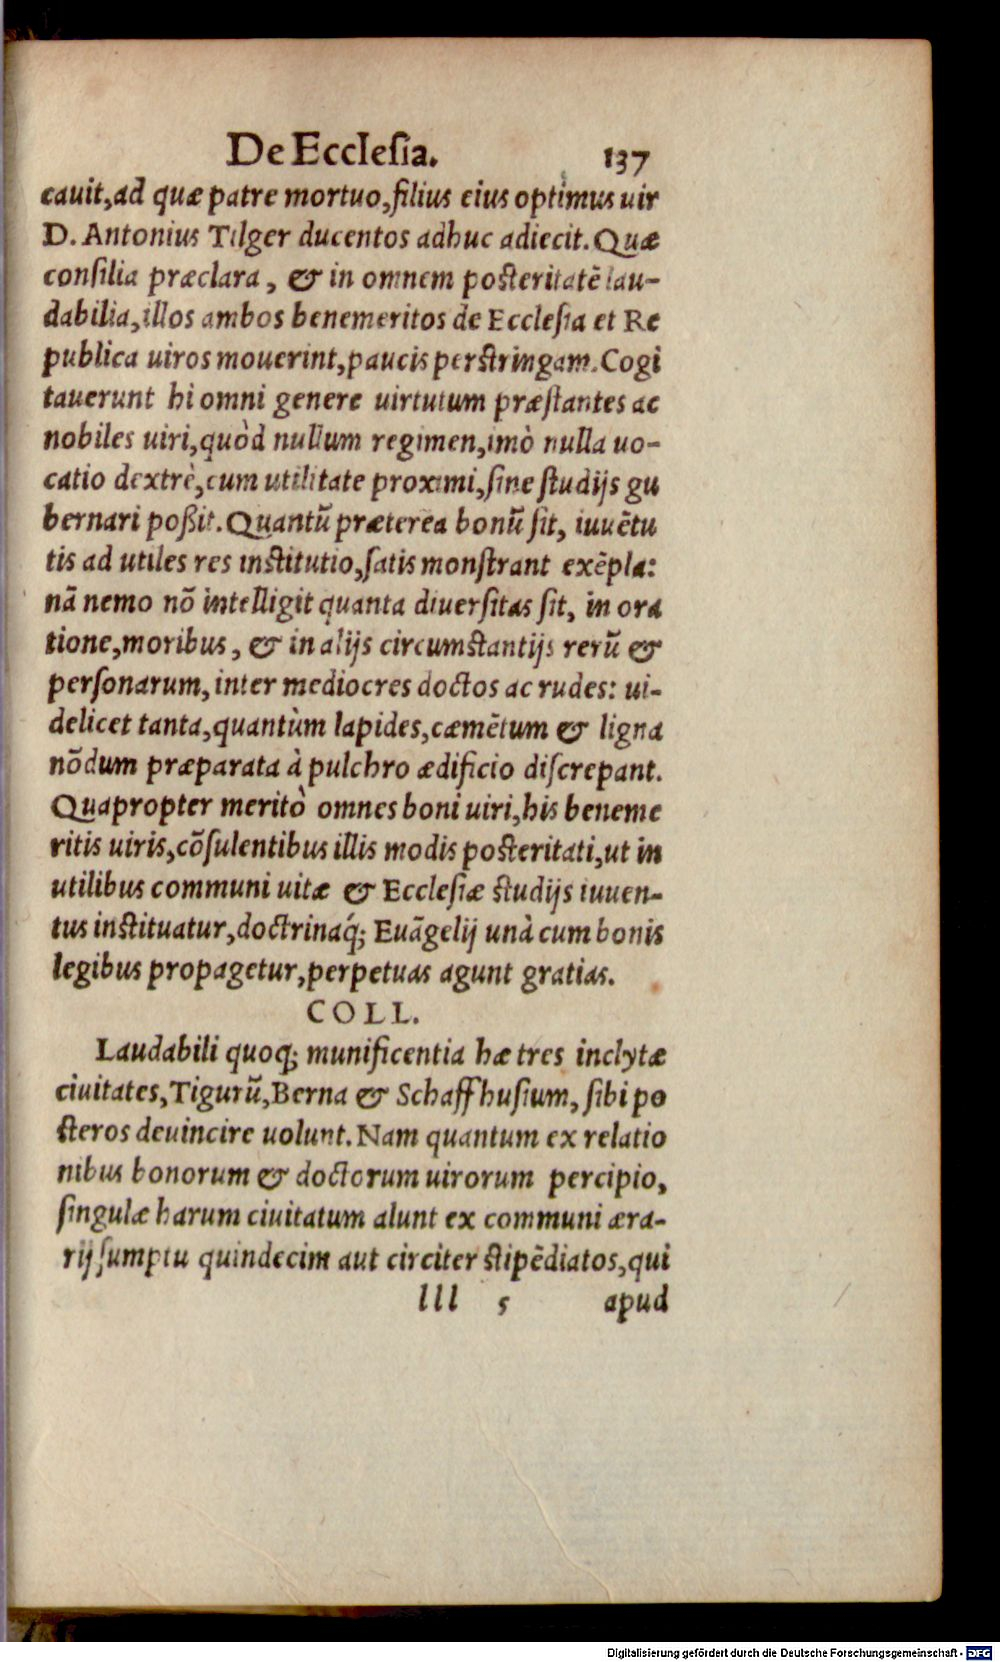 De Ecclesia. 137
cauit, ad quæ patre mortuo, filius eius optimus uir
D. Antonius Tilger ducentos adhuc adiecit. Quæ
consilia præclara, & in omnem posteritatē lau-
dabilia, illos ambos benemeritos de Ecclesia et Re
publica uiros mouerint, paucis perstringam. Cogi
tauerunt hi omni genere uirtutum præstantes ac
nobiles uiri, quòd nullum regimen, imò nulla uo-
catio dextrè, cum utilitate proximi, sine studijs gu
bernari poßit. Quantū præterea bonū sit, iuuētu
tis ad utiles res institutio, satis monstrant exēpla:
nā nemo nō intelligit quanta diuersitas sit, in ora
tione, moribus, & in alijs circumstantijs rerū &
personarum, inter mediocres doctos ac rudes: ui-
delicet tanta, quantùm lapides, cæmētum & ligna
nōdum præparata à pulchro ædificio discrepant.
Quapropter meritò omnes boni uiri, his beneme
ritis uiris, cōsulentibus illis modis posteritati, ut in
utilibus communi uitæ & Ecclesiæ studijs iuuen-
tus instituatur, doctrinaq́; Euāgelij unà cum bonis
legibus propagetur, perpetuas agunt gratias.
COLL.
Laudabili quoq; munificentia hæ tres inclytæ
ciuitates, Tigurū, Berna & Schaffhusium, sibi po
steros deuincire uolunt. Nam quantum ex relatio
nibus bonorum & doctorum uirorum percipio,
singulæ harum ciuitatum alunt ex communi æra-
rij sumptu quindecim aut circiter stipēdiatos, qui
lll 5 apud
Digitalisierung gefördert durch die Deutsche Forschungsgemeinschaft - DFG